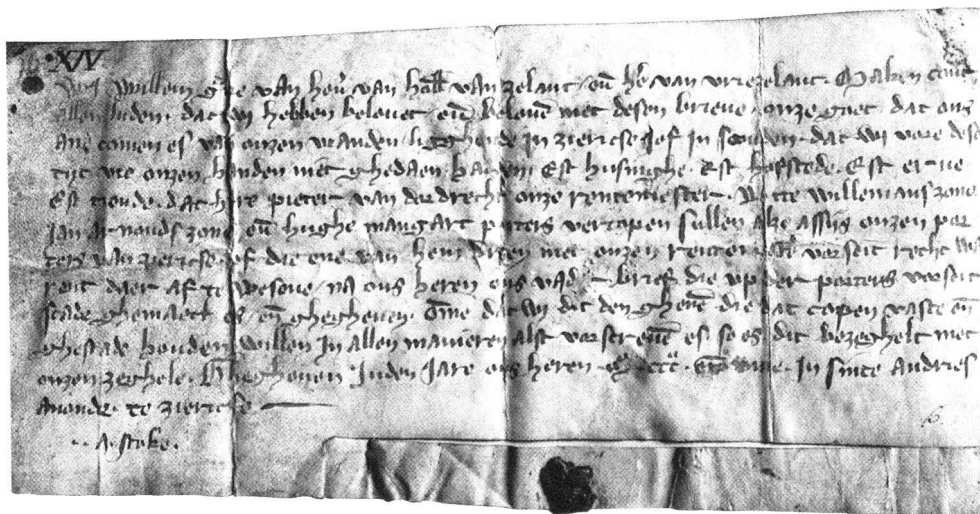 XIV
Wij Willem g̃ue van hen̄ van hol̄l van zelant en̄ h̄e van vriezelant. Maken cont
allen luden. dat wi hebben belouet. en̄ belouē met desen brieue. onze goet dat ons
ane comen es van onzen vianden ligghende in zierixe jof in scouden. dat wi vore dese
tijt vte onzen handen niet ghedaen hadden Est husinghe. Est hofstede. Est erue
Est tiende. dat here pieter van dordrecht onze rentemeester. Witte willemans zone
jan arnouds zone en̄ hughe mangart porters vercopen sullen alze assijs onzen por
ters van zierixe. jof die ene van hem drien met onzen rentem̄r vorseit recht wa
rent daer af te wesene. na ons heren ons vader brief die vp der porters vorseit
scade ghemaect es en̄ ghegheuen. Ōme dat wi dit den ghenē die dat copen vaste en̄
ghestade houden willen in allen manieren alst vorscreuē es. so es dit bezeghelt met
onzen zeghele. Ghegheuen inden jare ons heren in sinte andries
auonde. te zierixe
.. A. stoke.